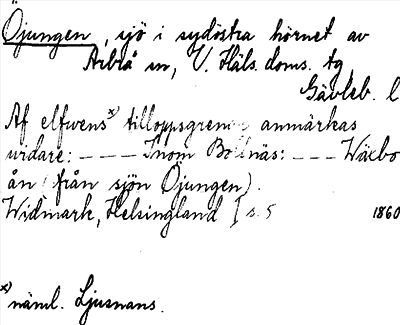 Öjungen, sjö i sydöstra hörnet av
Arbrå sn, V. Häls. doms. tg
Gävleb. l
Af elfwens x) tilloppsgrenar anmärkas
widare: ---- Inom Bollnäs: --- Wäxbo
ån (från sjön Öjungen).
Widmark, Helsingland I s. 5 1860
x) näml. Ljusnans.